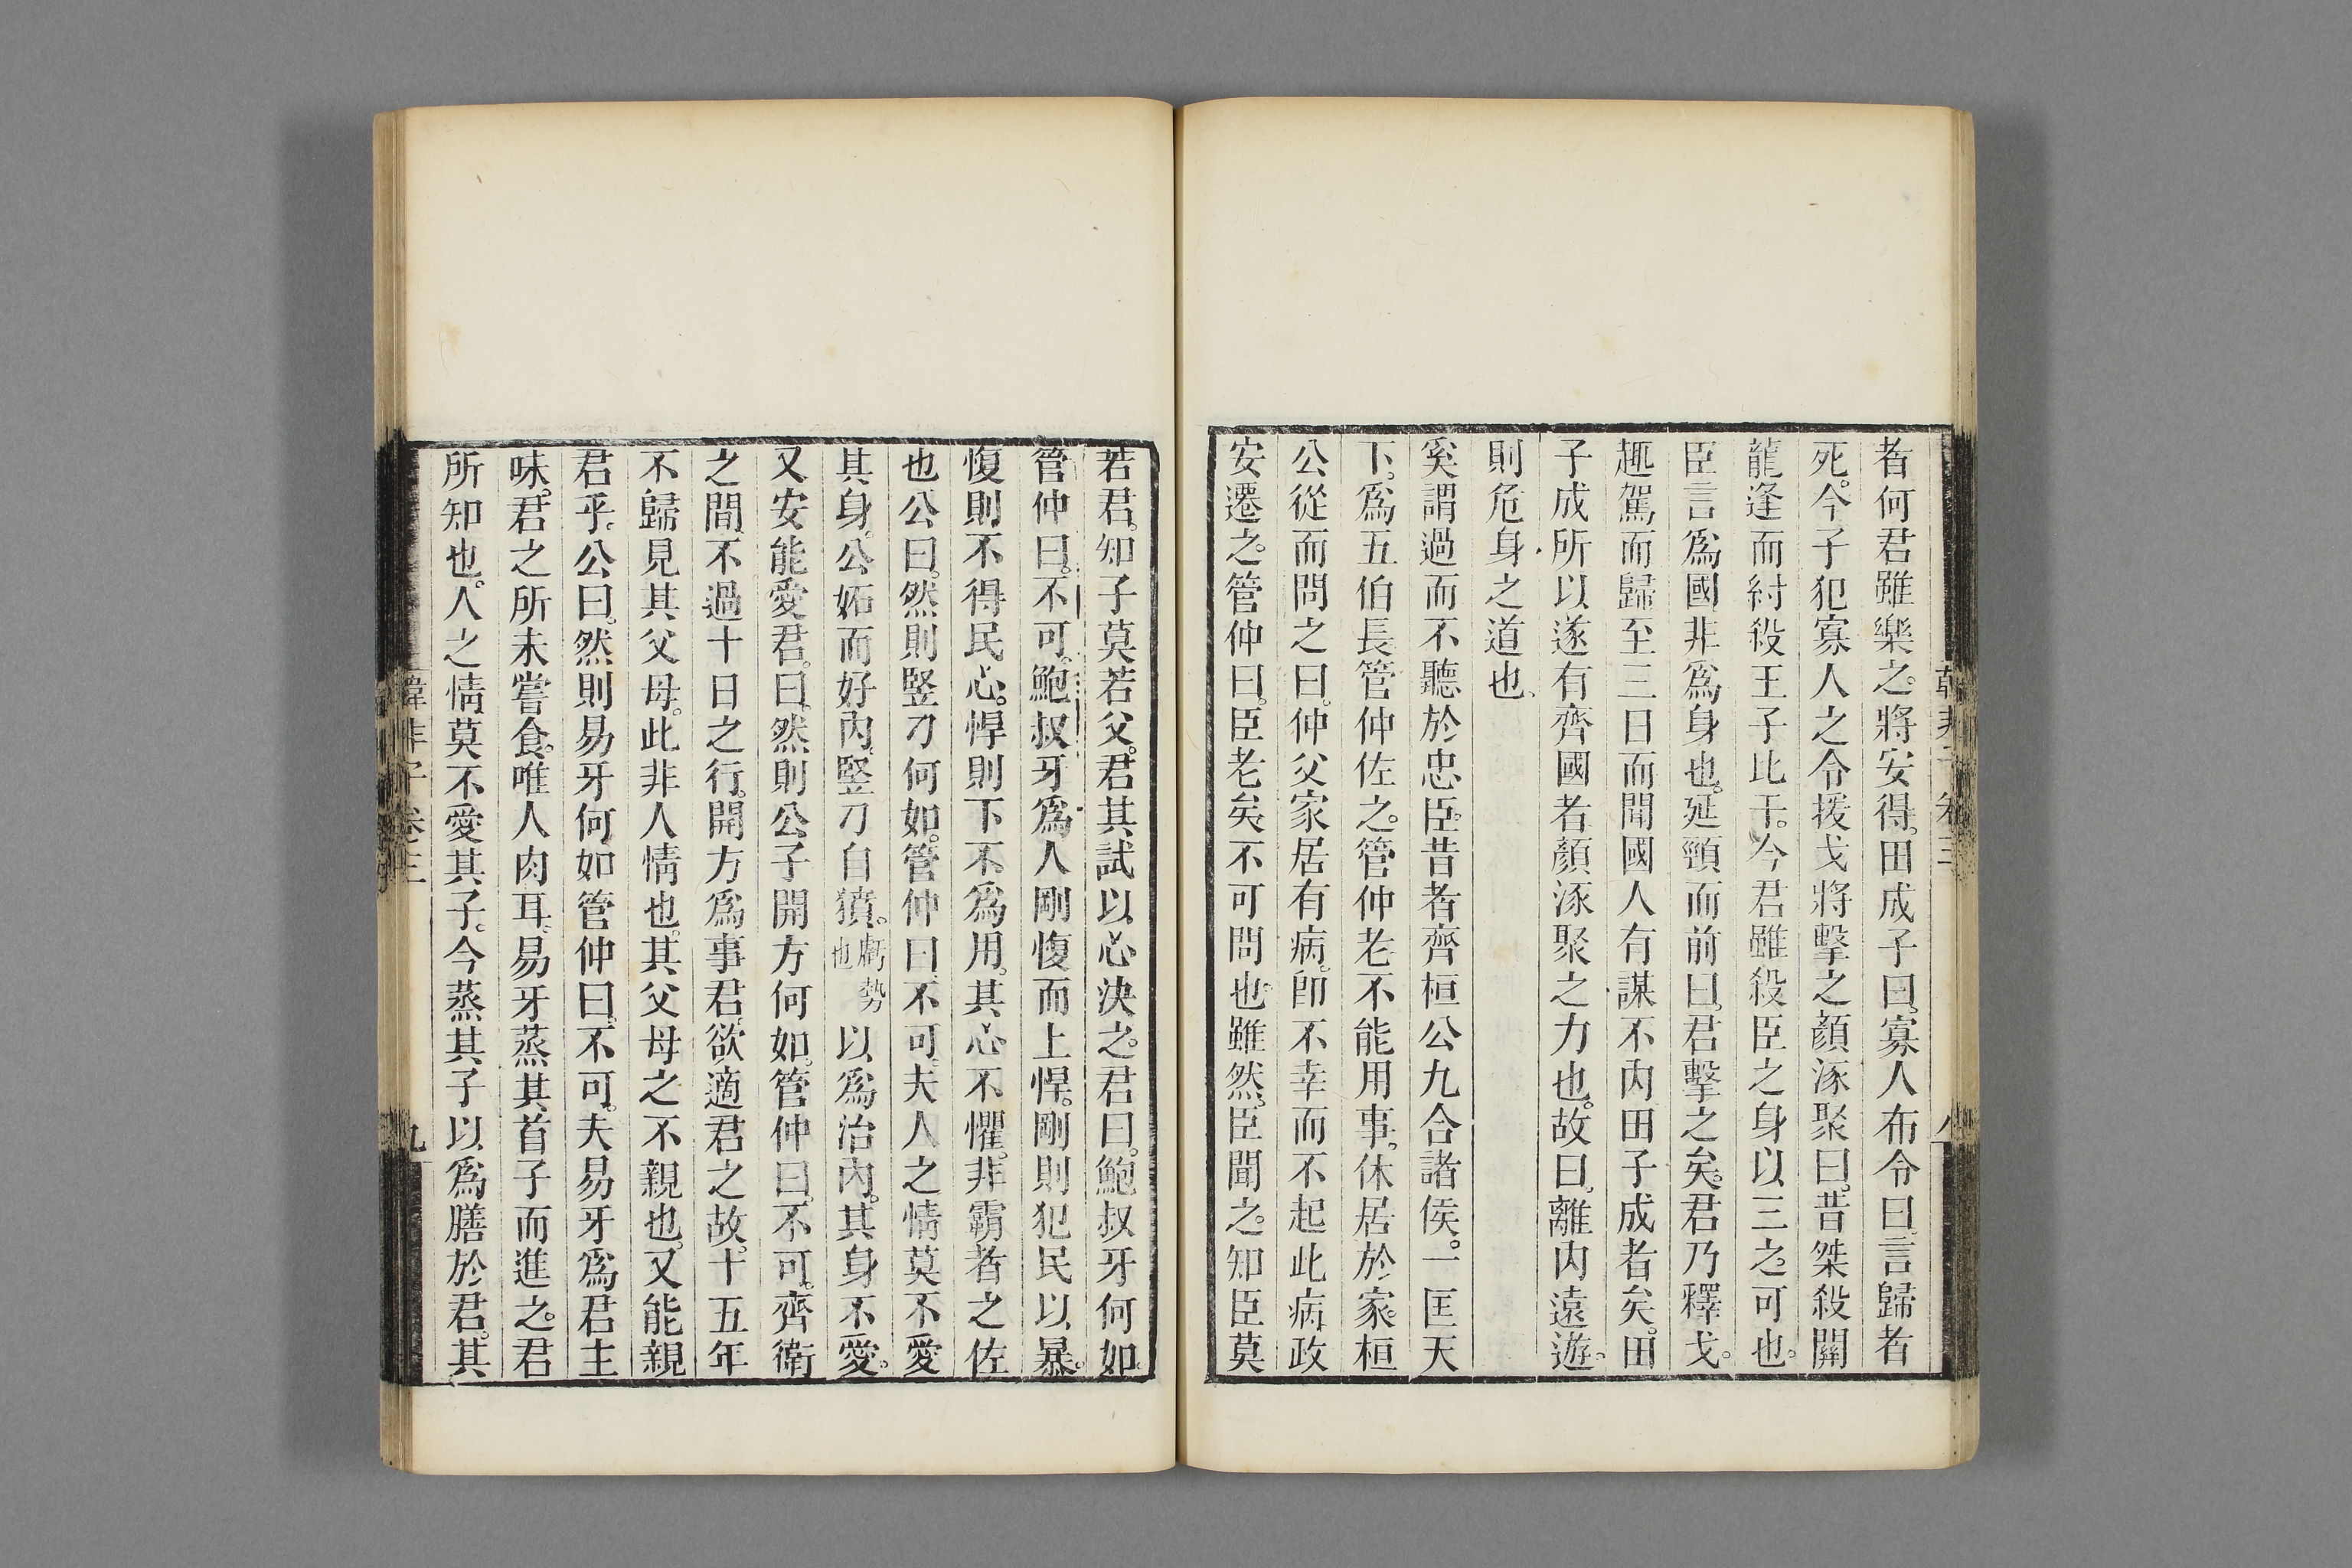 者何君雖樂之。將安得。田成子曰。寡人布令曰。言歸者
死。今子犯寡人之令援戈將擊之顔涿聚曰。昔桀殺關
龍逢而紂殺王子比干。今君雖殺臣之身以三之可也。
臣言爲國非爲身也。延頸而前曰。君擊之矣。君乃釋戈。
趣駕而歸至三日而聞國人有謀不内田子成者矣。田
子成所以遂有齊國者顔涿聚之力也。故曰。離内遠遊。
則危身之道也。
奚謂過而不聽於忠臣。昔者齊桓公九合諸侯。一匡天
下。爲五伯長管仲佐之。管仲老不能用事。休居於家。桓
公從而問之曰。仲父家居有病。卽不幸而不起此病政
安遷之。管仲曰。臣老矣不可問也。雖然。臣聞之。知臣莫
若君。知子莫若父。君其試以心決之。君曰。鮑叔牙何如。
管仲曰。不可。鮑叔牙爲人剛愎而上悍。剛則犯民以暴。
愎則不得民心。悍則下不爲用。其心不懼。非霸者之佐
也公曰。然則竪刁何如。管仲曰。不可。夫人之情莫不愛
其身。公妬而好内。竪刁自獖。虧勢也以爲治内。其身不愛。
又安能愛君。曰。然則公子開方何如。管仲曰。不可。齊衛
之間。不過十日之行。開方爲事君。欲適君之故。十五年
不歸見其父母。此非人情也。其父母之不親也。又能親
君乎。公曰。然則易牙何如管仲曰。不可。夫易牙爲君主
味。君之所未嘗食。唯人肉耳。易牙蒸其首子而進之。君
所知也。人之情莫不愛其子。今蒸其子以爲膳於君。其
韓非子卷三
九